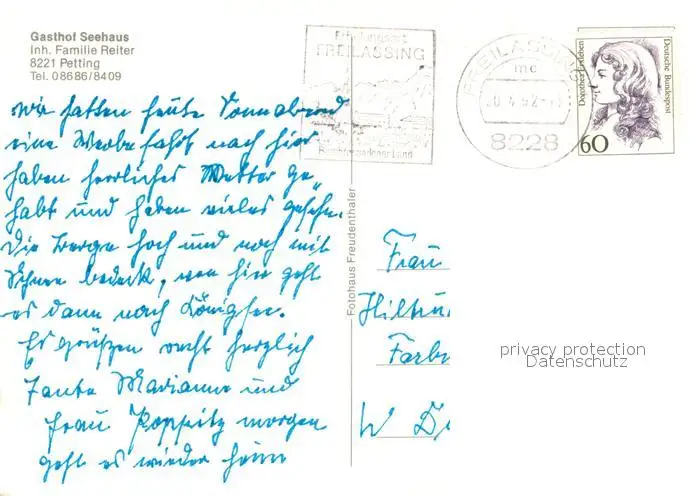 Gasthof Seehaus
Inh. Familie Reiter
8221 Petting
Tel. 08686/8409
Erholungsort
FREILASSING
Berchtesgadener Land
FREILASSING
mc
20.4.92
8228
Dorothea Erxleben
Deutsche Bundespost
60
Wir hatten heute Sonnabend
eine Werbefahrt nach hier
haben herrliches Wetter ge-
habt und haben vieles gesehen.
Die Berge hoch und noch mit
Schnee bedeckt, von hier geht
es dann nach Königsee.
Es grüßen recht herzlich
Tante Marianne und
Frau Poppitz morgen
geht es wieder heim
Fotohaus Freudenthaler
Frau
Hiltru
Farb
W
privacy protection
Datenschutz